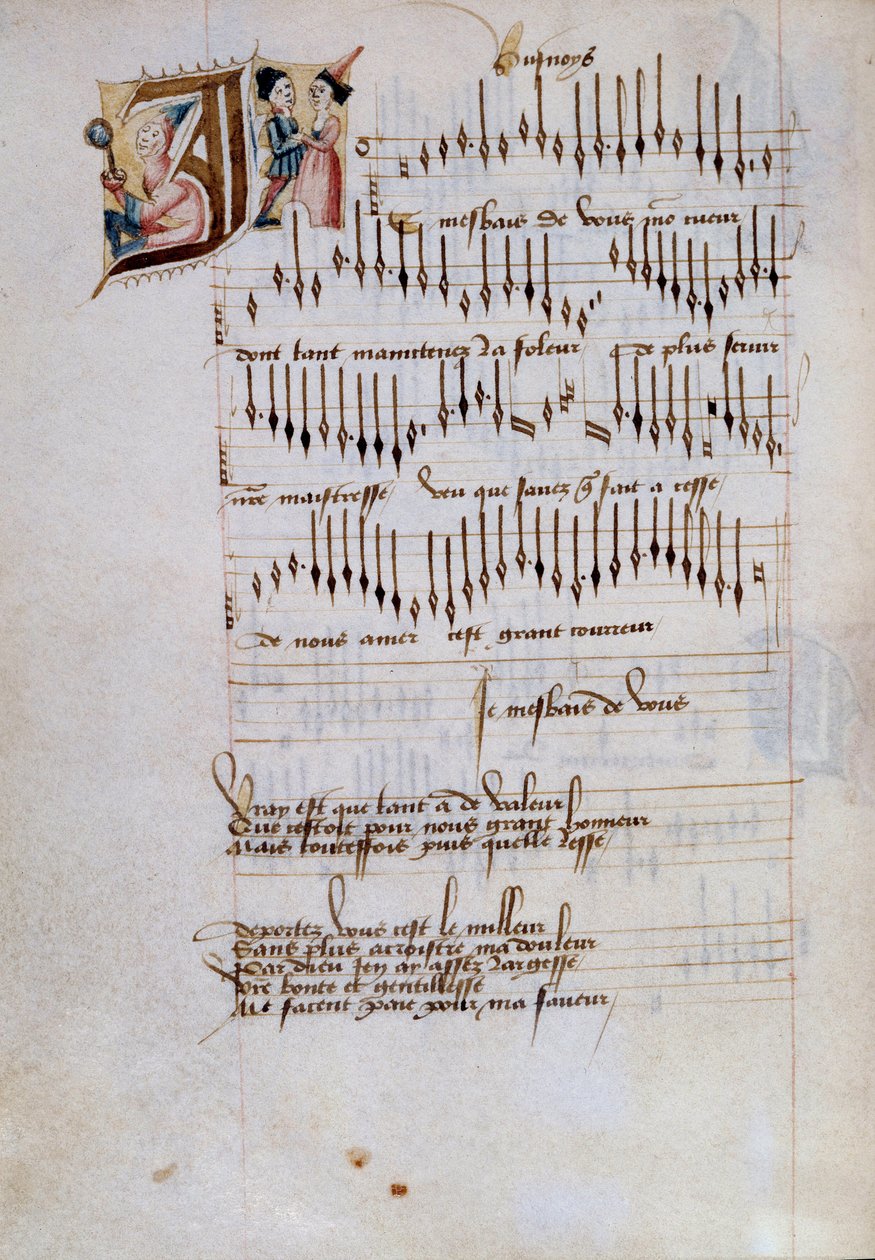 Busnoys
JE mesbais de vous mō cueur
dont tant maintenez la foleur / De plus seruir
nr̄e maistresse / Veu que sauez q̄ sait a cesse /
De nous amer cest grant courreur /
Je mesbais de vous
Vray est que tant a de valeur
Que cestoit pour nous grant honneur
Mais touteffois puis quelle lesse /
Deportez vous cest le milleur
Sans plus acroistre ma douleur
Par dieu Jen ay assez largesse /
Vr̄e bonte et gentillesse
Me facent paie pour ma faueur /